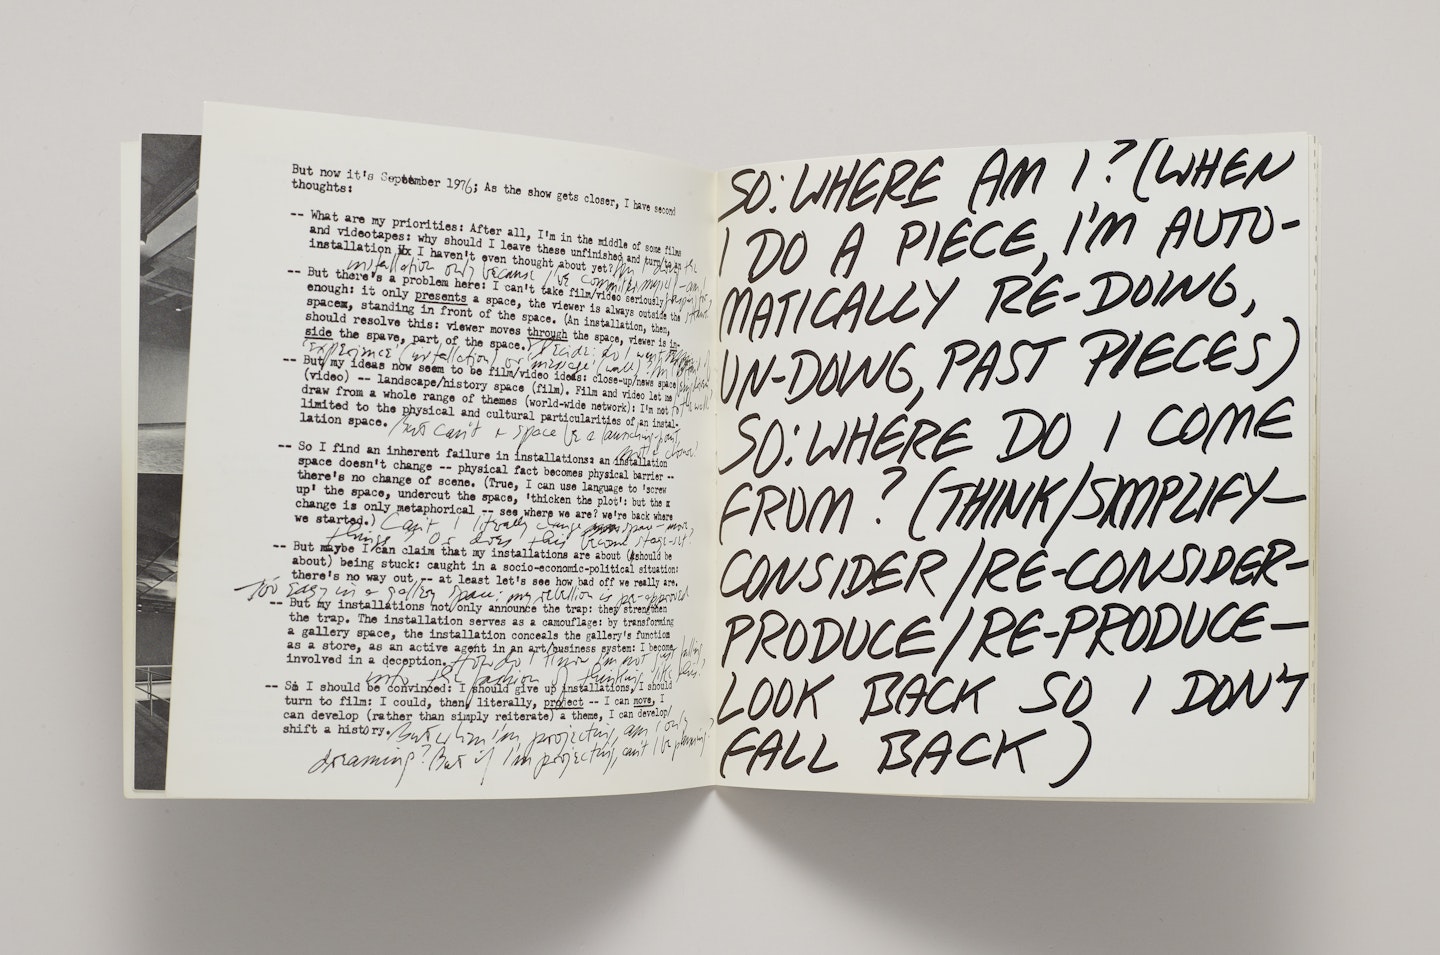 But now it's September 1976; As the show gets closer, I have second
thoughts:
-- What are my priorities: After all, I'm in the middle of some films
and videotapes: why should I leave these unfinished and
installation I haven't even thought about yet?
installation only because
-- But there's a problem here: I can't take film/video seriously
enough: it only presents a space, the viewer is always outside the
space, standing in front of the space. (An installation, then,
should resolve this: viewer moves through the space, viewer is in-
side the spave, part of the space.)
experience (installation) or message
-- But my ideas now seem to be film/video ideas: close-up/news space
(video) -- landscape/history space (film). Film and video let me
draw from a whole range of themes (world-wide network): I'm not
limited to the physical and cultural particularities of an instal-
lation space. But can't a space be a launching-point,
not a
-- So I find an inherent failure in installations: an installation
space doesn't change -- physical fact becomes physical barrier --
there's no change of scene. (True, I can use language to 'screw
up' the space, undercut the space, 'thicken the plot': but the x
change is only metaphorical -- see where we are? we're back where
we started.) Can't I literally change space — move
things? Or does this become stage-set?
-- But maybe I can claim that my installations are about (should be
about) being stuck: caught in a socio-economic-political situation:
there's no way out -- at least let's see how bad off we really are.
Too easy in a gallery space: my rebellion is pre-approved
-- But my installations not only announce the trap: they strengthen
the trap. The installation serves as a camouflage: by transforming
a gallery space, the installation conceals the gallery's function
as a store, as an active agent in an art/business system: I become
involved in a deception. How do I know I'm not just falling
into the fashion of thinking like this?
-- So I should be convinced: I should give up installations, I should
turn to film: I could, then, literally, project -- I can move, I
can develop (rather than simply reiterate) a theme, I can develop/
shift a history. But when I'm projecting, am I only
dreaming? But if I'm projecting, can't I be planning?
SO: WHERE AM I? (WHEN
I DO A PIECE, I'M AUTO-
MATICALLY RE-DOING,
UN-DOING, PAST PIECES)
SO: WHERE DO I COME
FROM? (THINK/SIMPLIFY—
CONSIDER/RE-CONSIDER—
PRODUCE/RE-PRODUCE—
LOOK BACK SO I DON'T
FALL BACK)